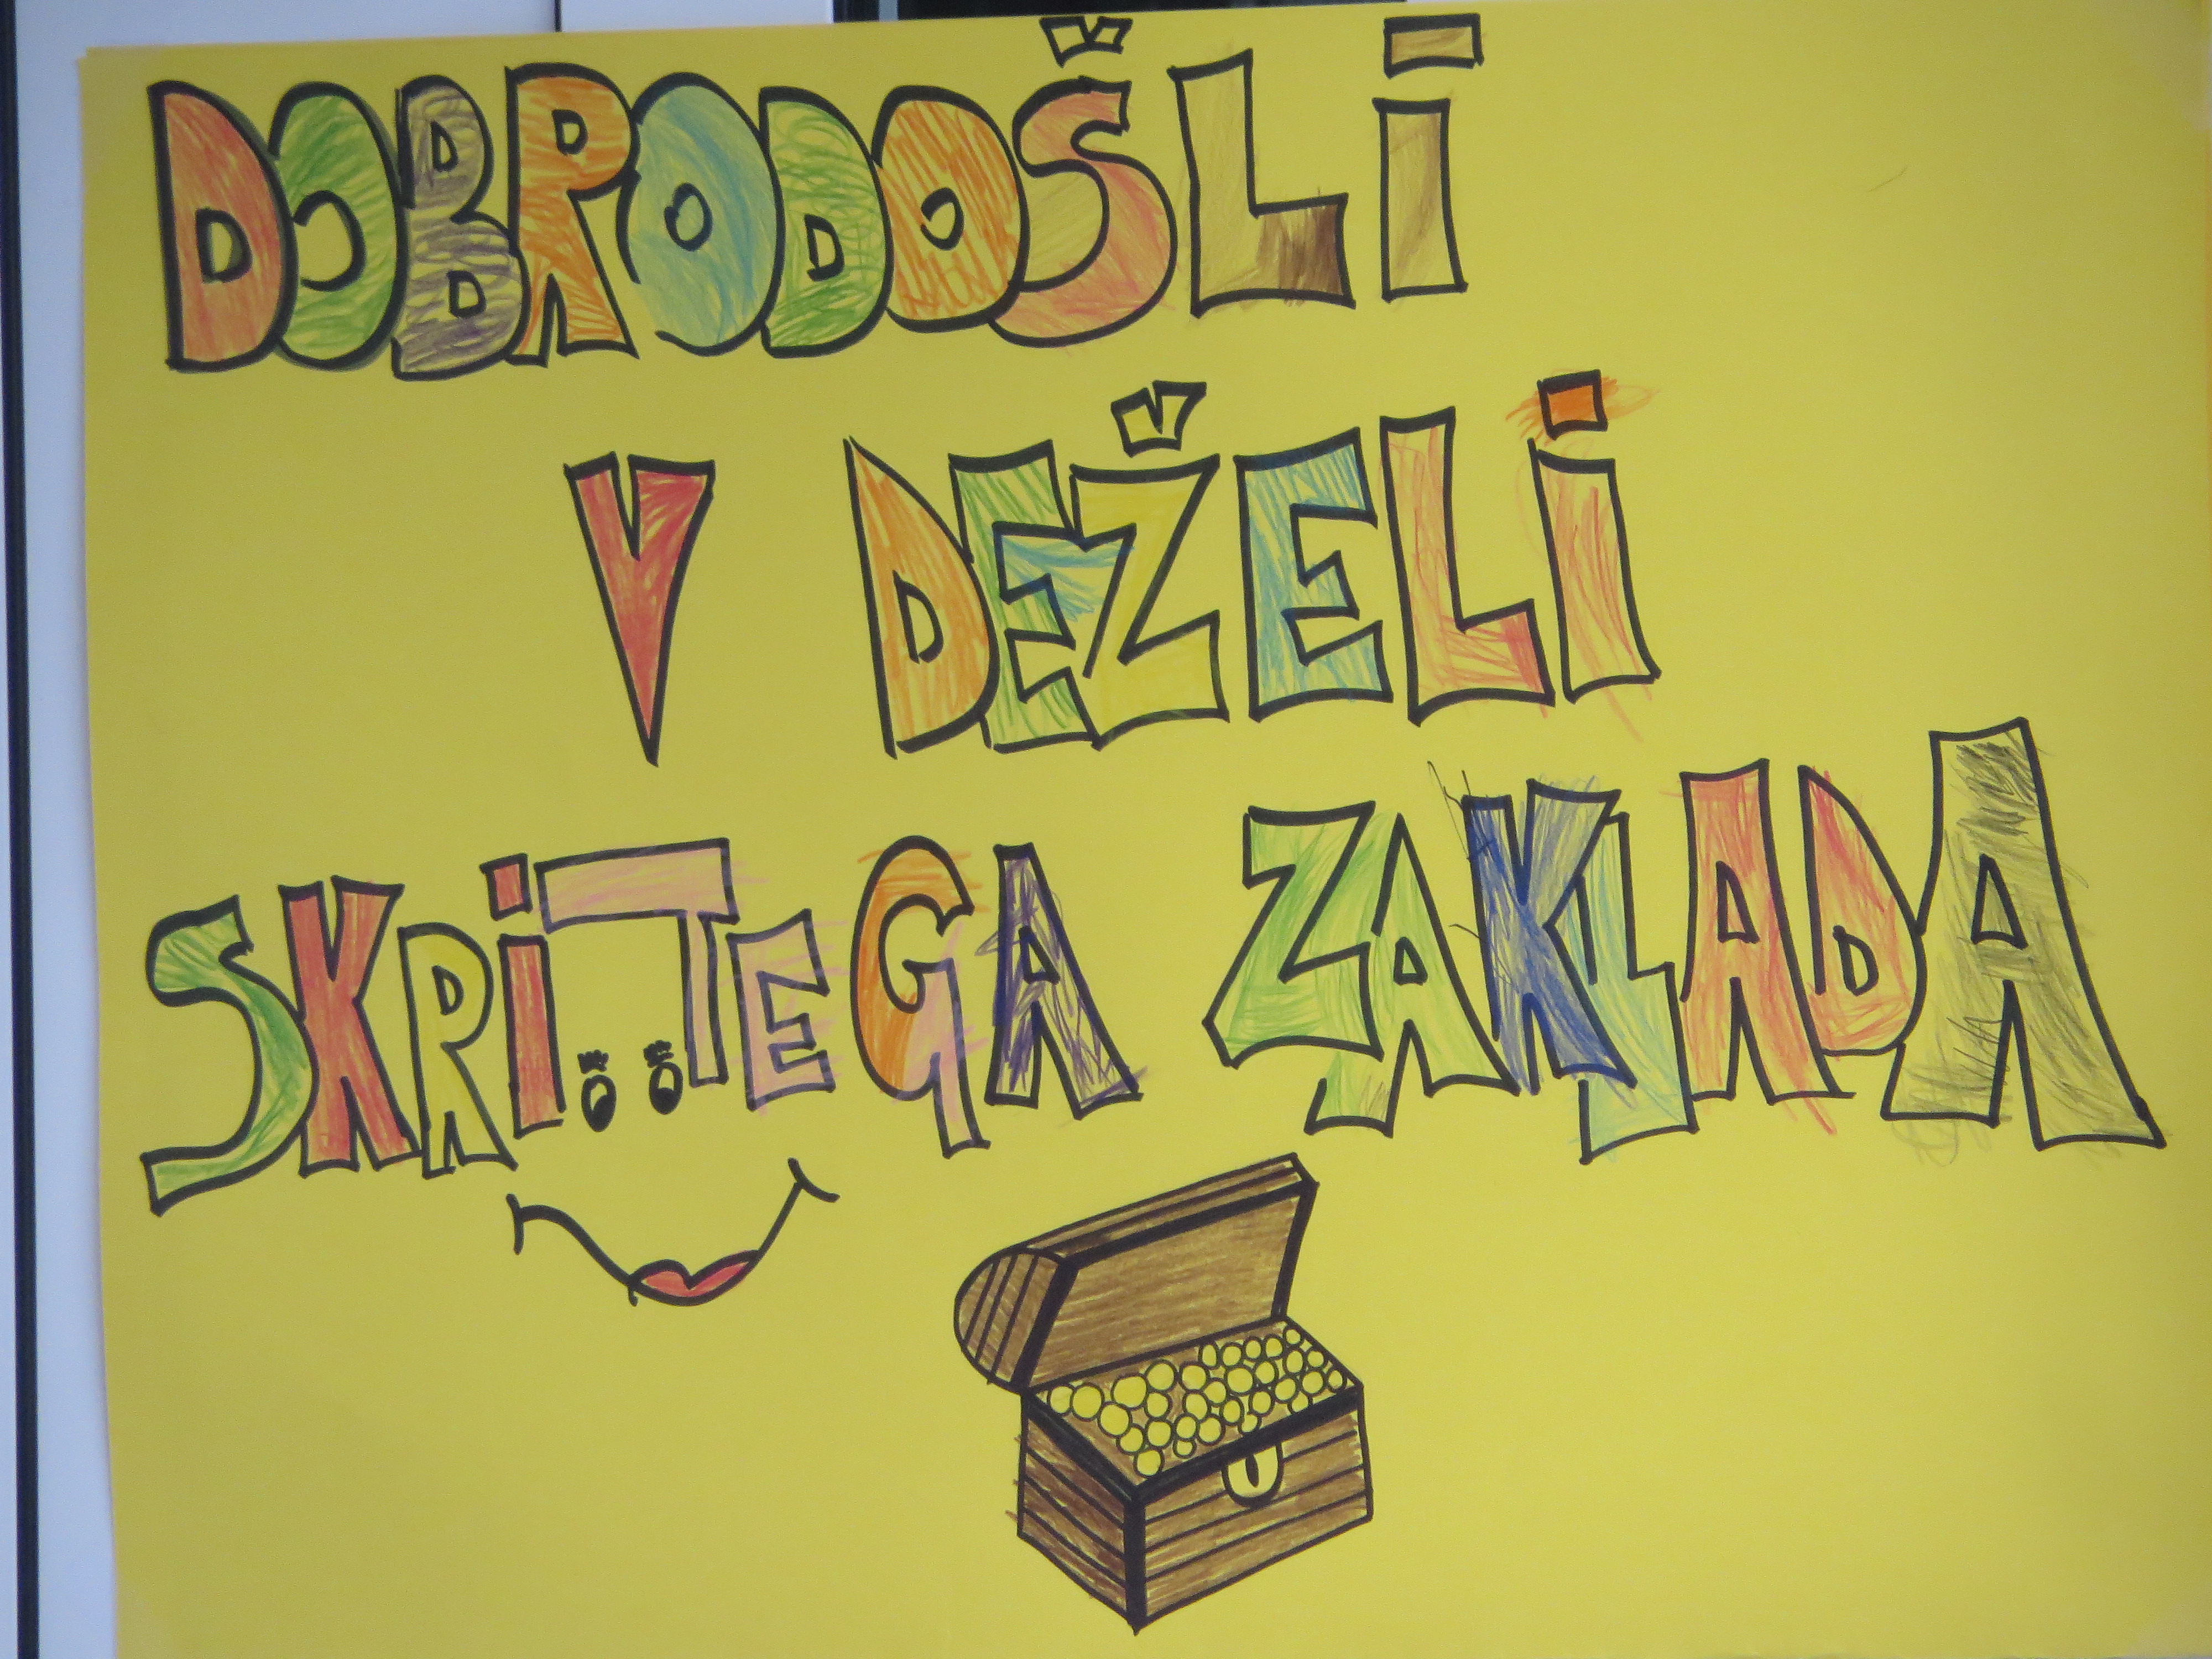 DOBRODOŠLI
V DEŽELI
SKRITEGA ZAKLADA